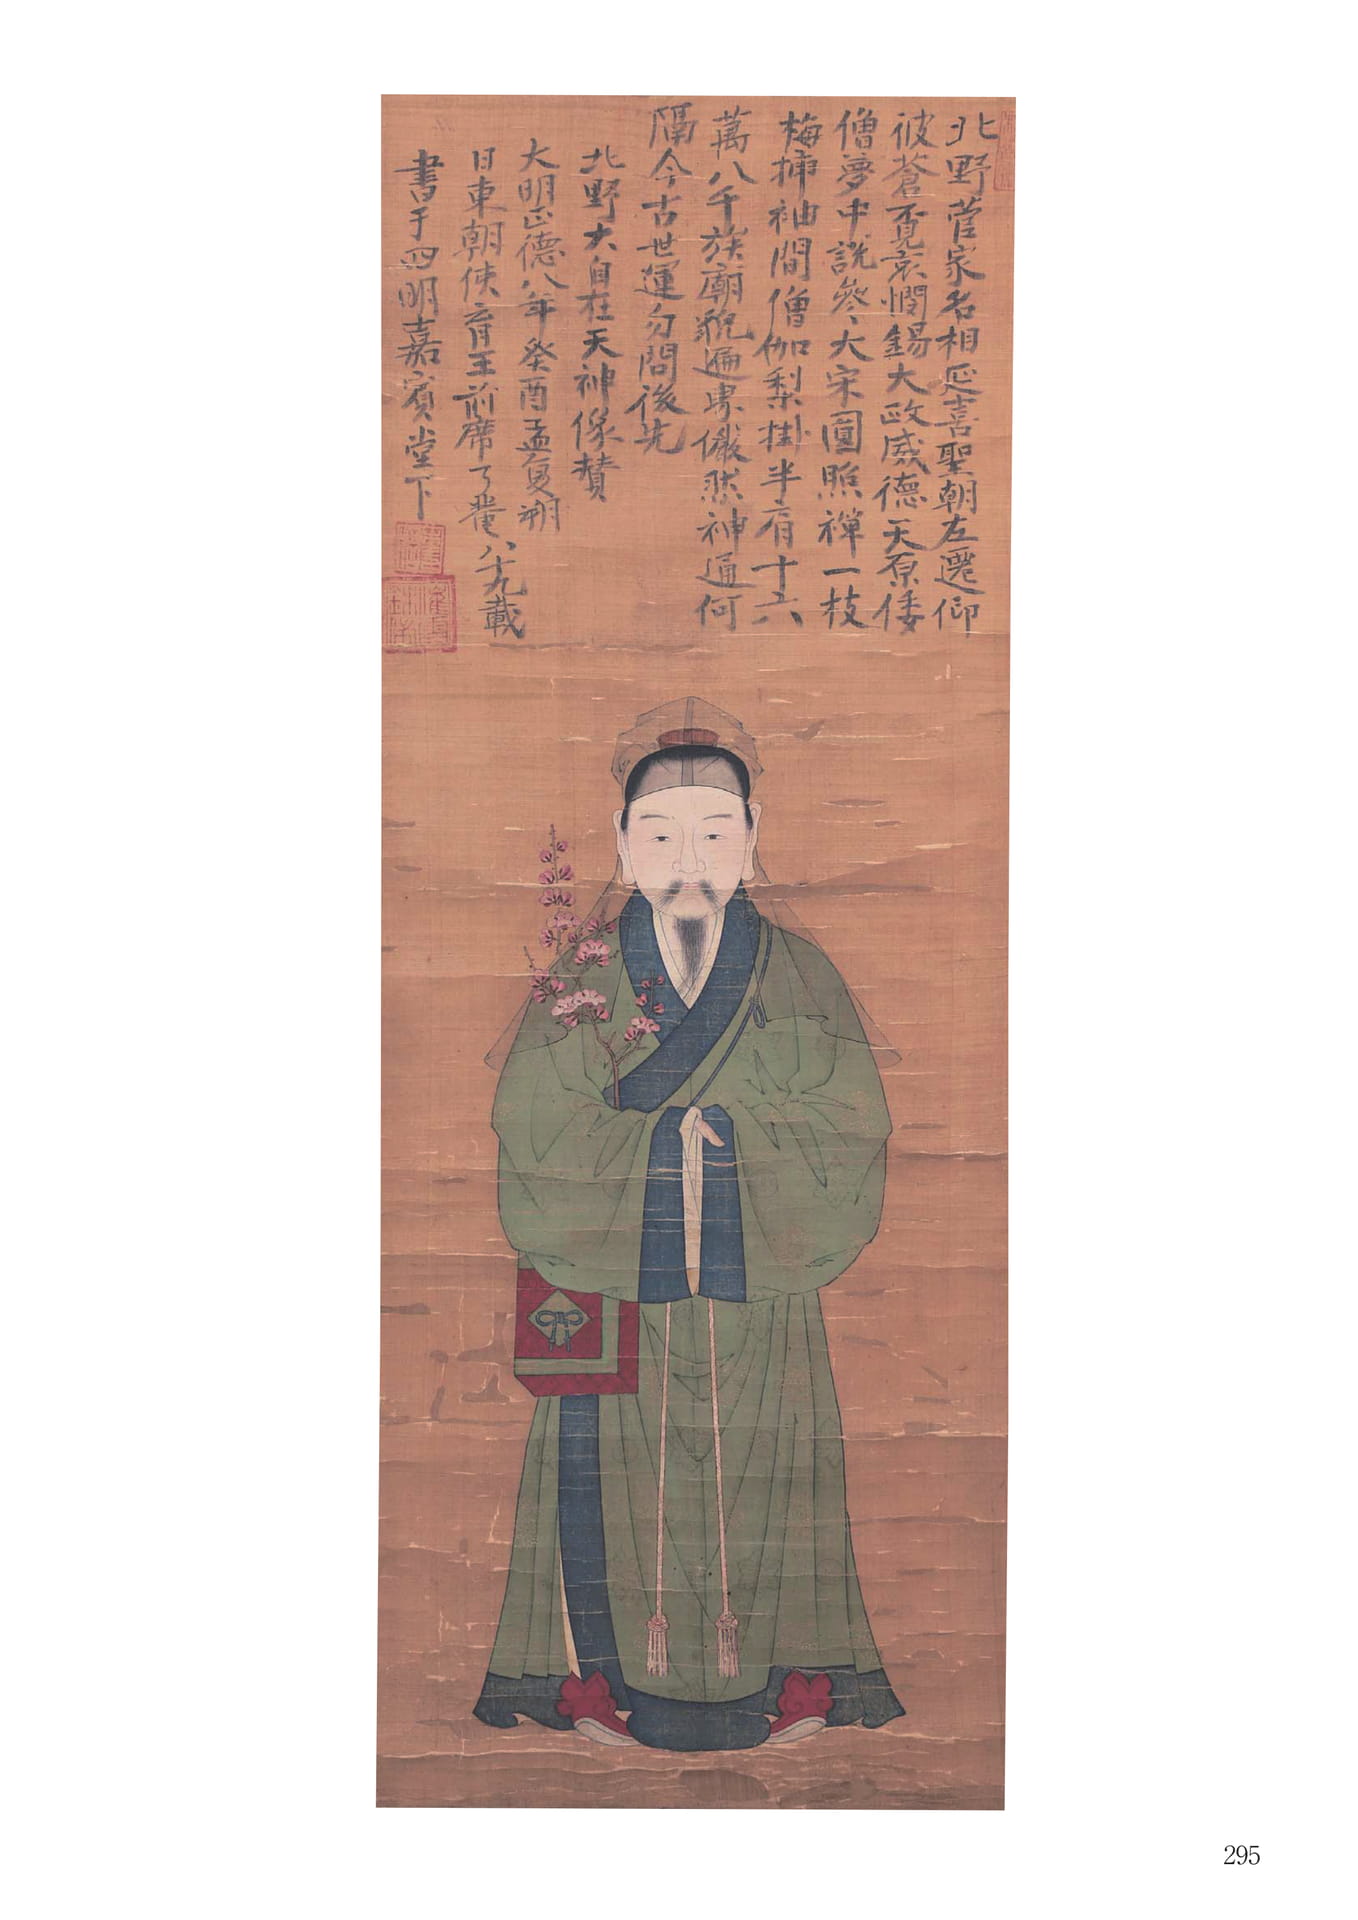 北野菅家名相延喜聖朝左遷仰
彼蒼覔哀憫錫大政威德天原倭
僧夢中說參大宋圓照禪一枝
梅挿袖間僧伽梨掛半肩十六
萬八千族廟貌遍界儼然神通何
隔今古世運勿問後先
北野大自在天神像賛
大明正德八年癸酉孟夏朔
日東朝使育王前席了菴八十九載
書于四明嘉賓堂下
295